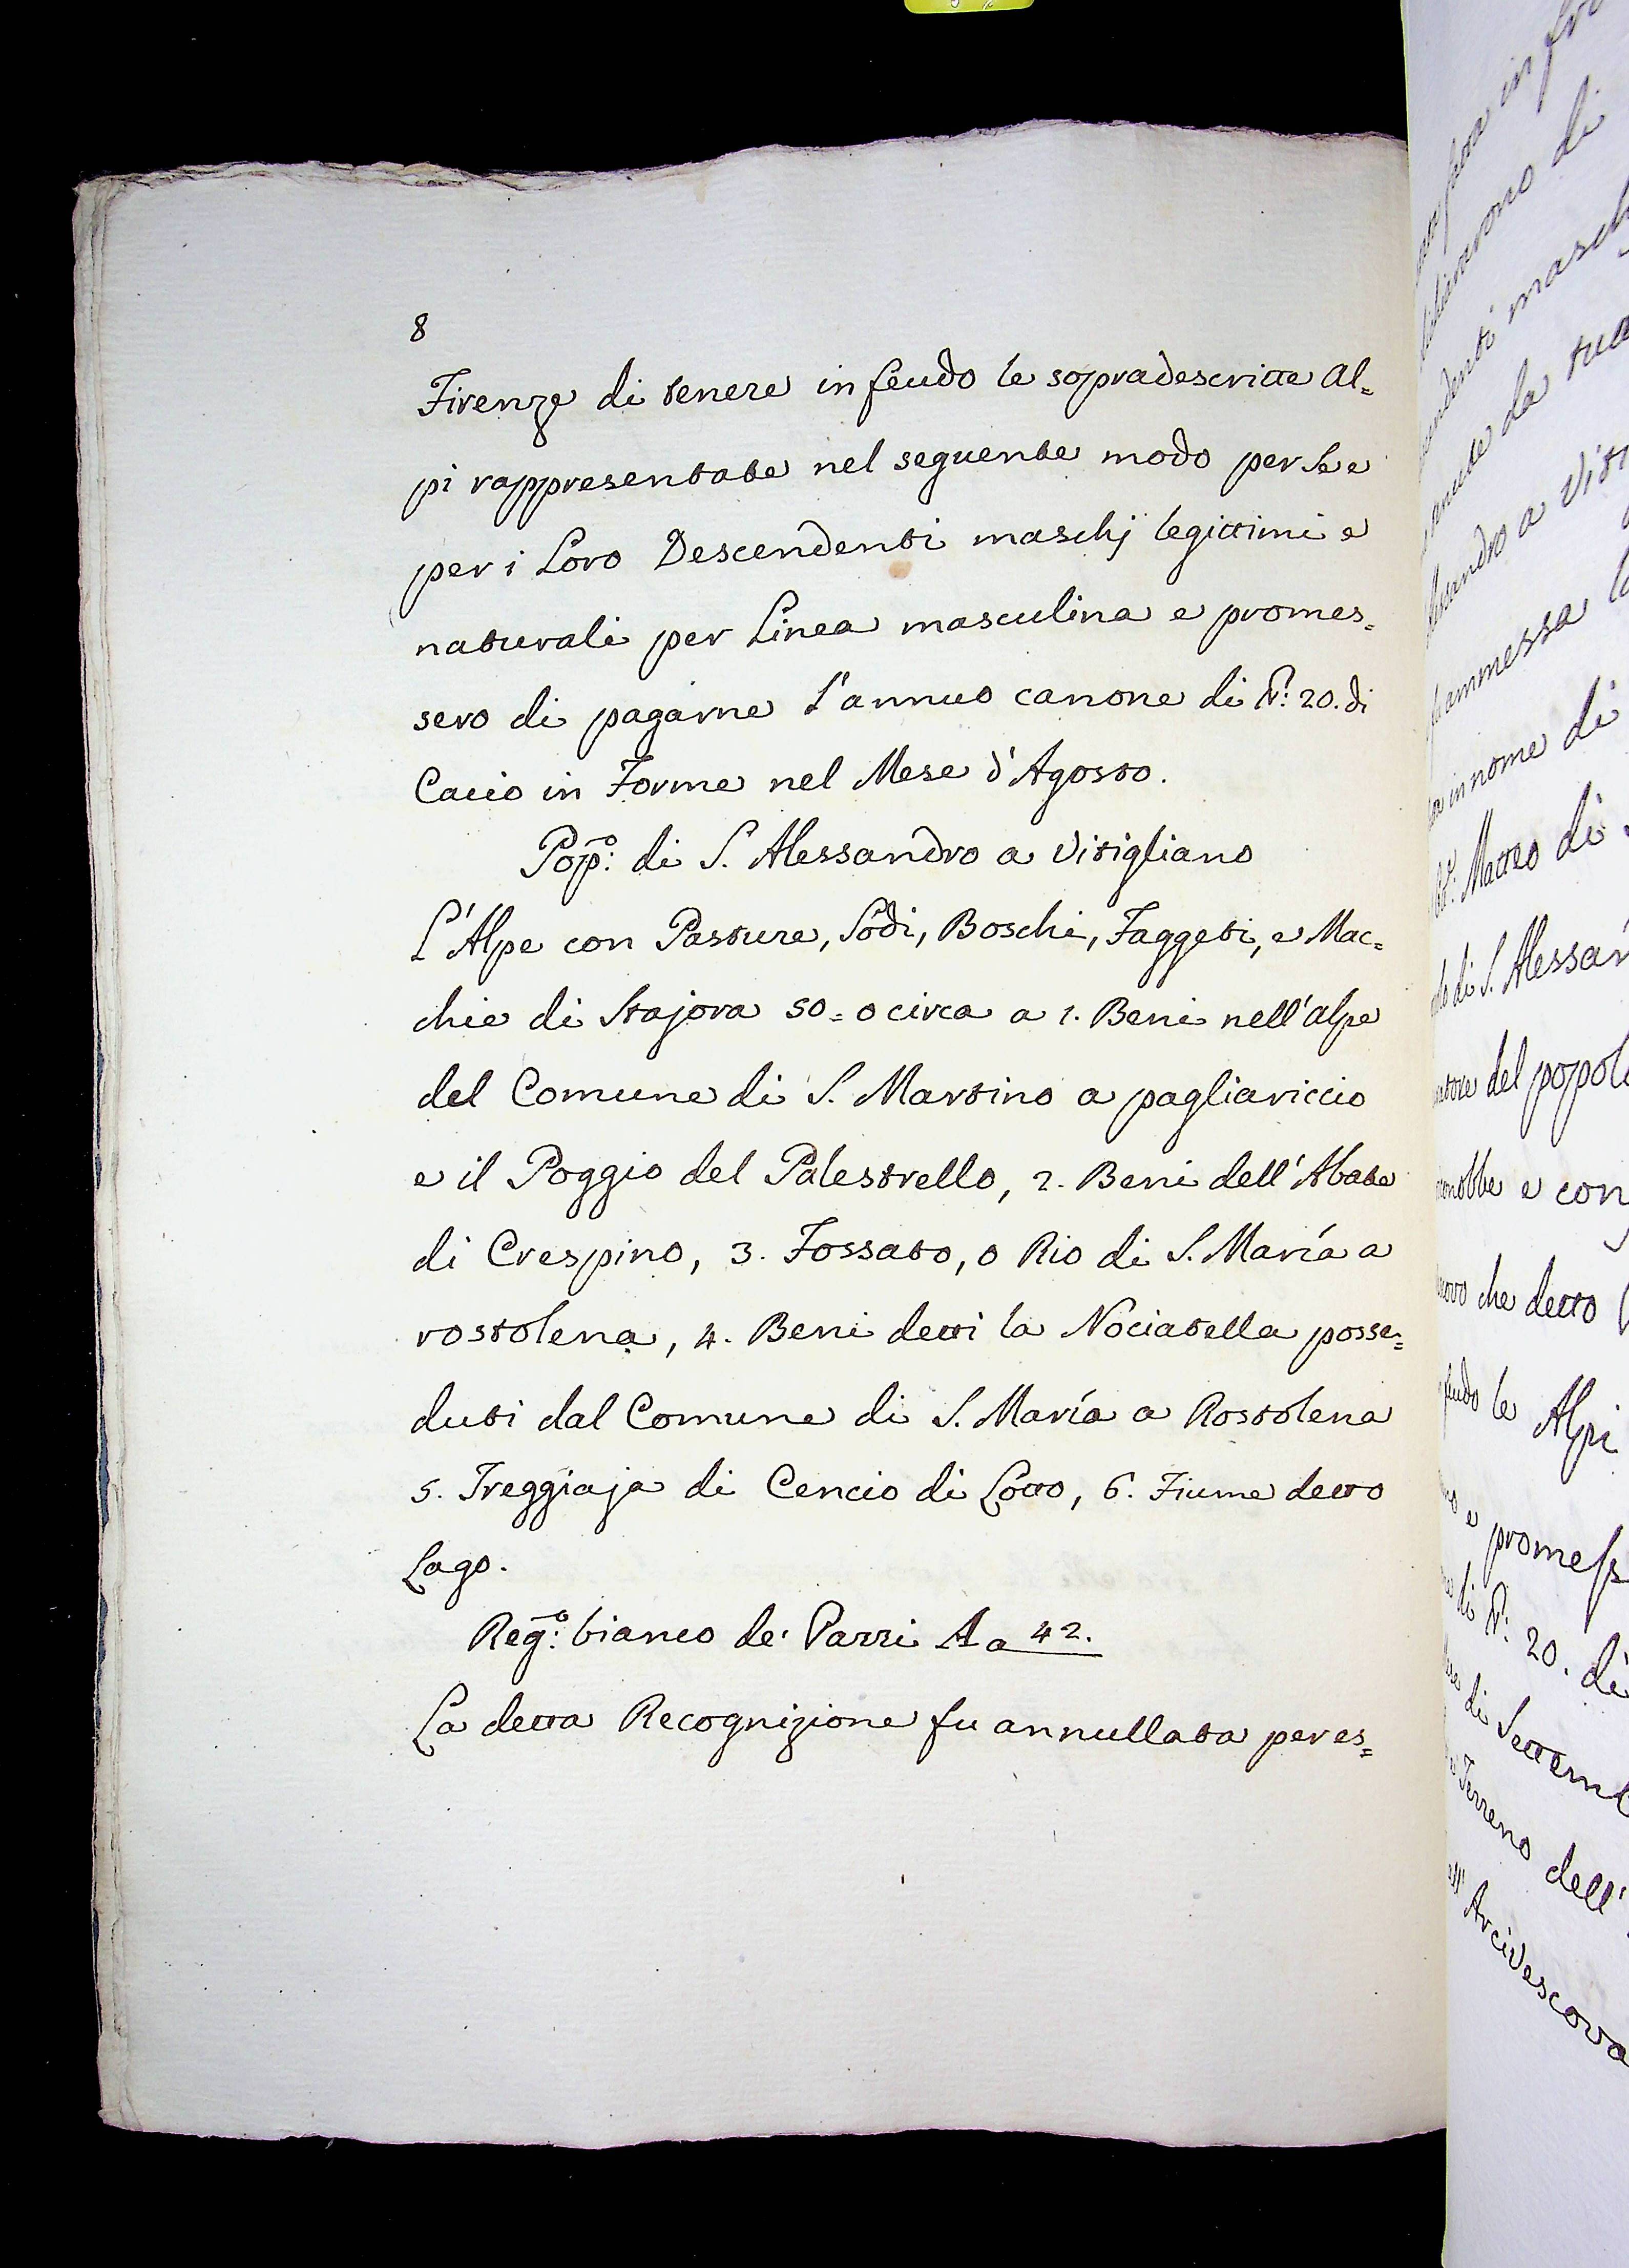 8
Firenze di tenere in feudo le sopradescritte Al=
pi rappresentate nel seguente modo per Se e
per i Loro Descendenti maschj legittimi e
naturali per Linea masculina e promes=
sero di pagarne l'annuo canone di 20. di
Cacio in Forme nel Mese d'Agosto.
Pop.o di S. Alessandro a Vitigliano
L'Alpe con Pasture, Sodi, Boschi, Faggeti, e Mac=
chie di Stajora 50= o circa a 1. Beni nell'alpe
del Comune di S. Martino a pagliariccio
e il Poggio del Palestrello, 2. Beni dell'Abate
di Crespino, 3. Fossato, o Rio di S. María a
rostolena, 4. Beni detti la Nociatella posse=
duti dal Comune di S. María a Rostolena
5. Treggiaja di Cencio di Lotto, 6. Fiume detto
Lago.
Reg.o bianco de' Pazzi A a 42.
La detta Recognizione fu annullata per es=
in fro
di
maschi
da sua
a Viti
ammessa
in nome di
Matteo di
di S. Alessan
del popol
e con
che detto
le Alpi
e promess
di 20. di
di Settemb
Terreno dell'
Arcivescova